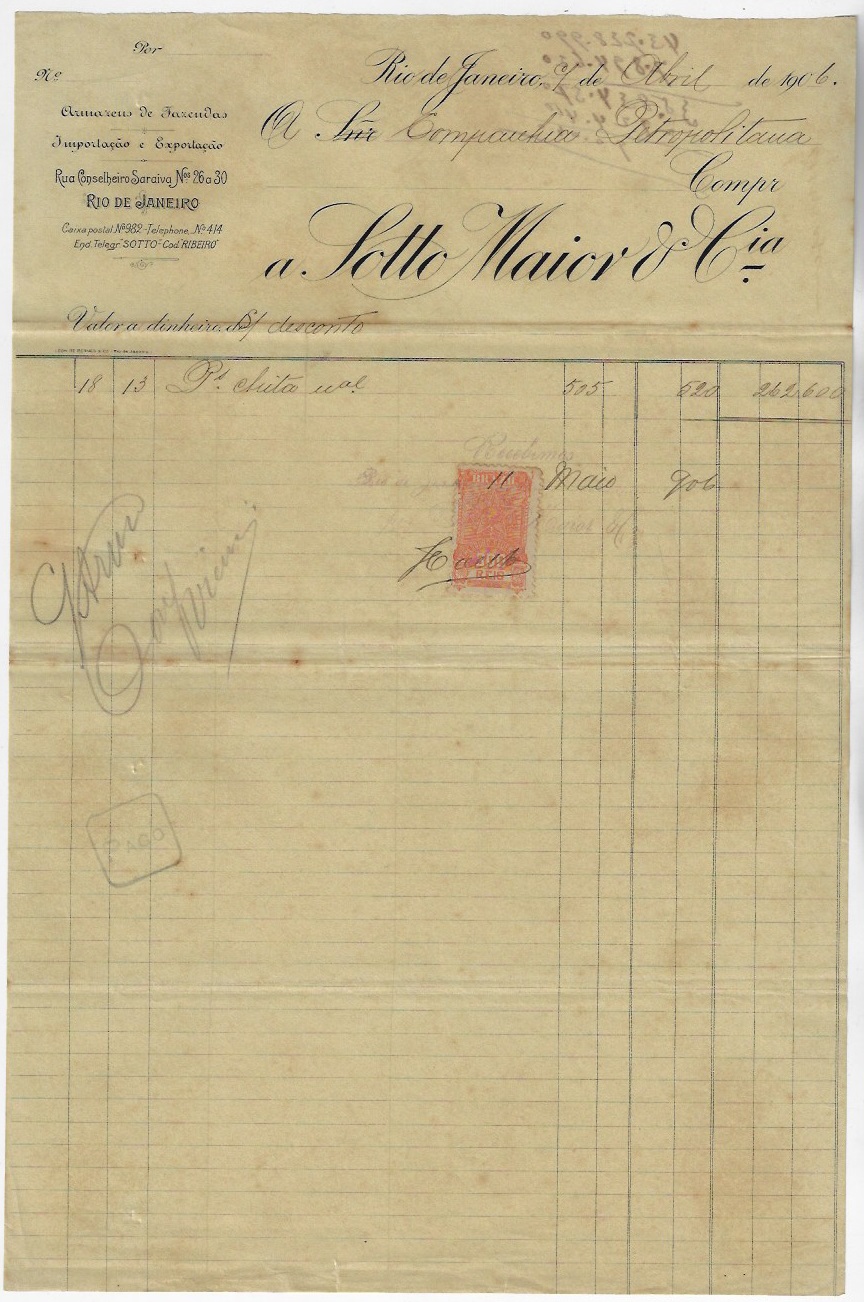 Por
Nº
Rio de Janeiro, 7 de Abril de 1906.
Armazens de Fazendas
Importação e Exportação
Rua Conselheiro Saraiva, Nos 26 a 30
RIO DE JANEIRO
Caixa postal Nº 982 - Telephone, Nº 414
End. Telegr. "SOTTO" - Cod. "RIBEIRO"
A Snr Companhia Petropolitana
Compr
a Sotto Maior & Cia
Valor a dinheiro, de s/ desconto
18 13 Ps. chita nal 505 520 262.600
Recebemos
Rio de 11 Maio 906
REIS
PAGO